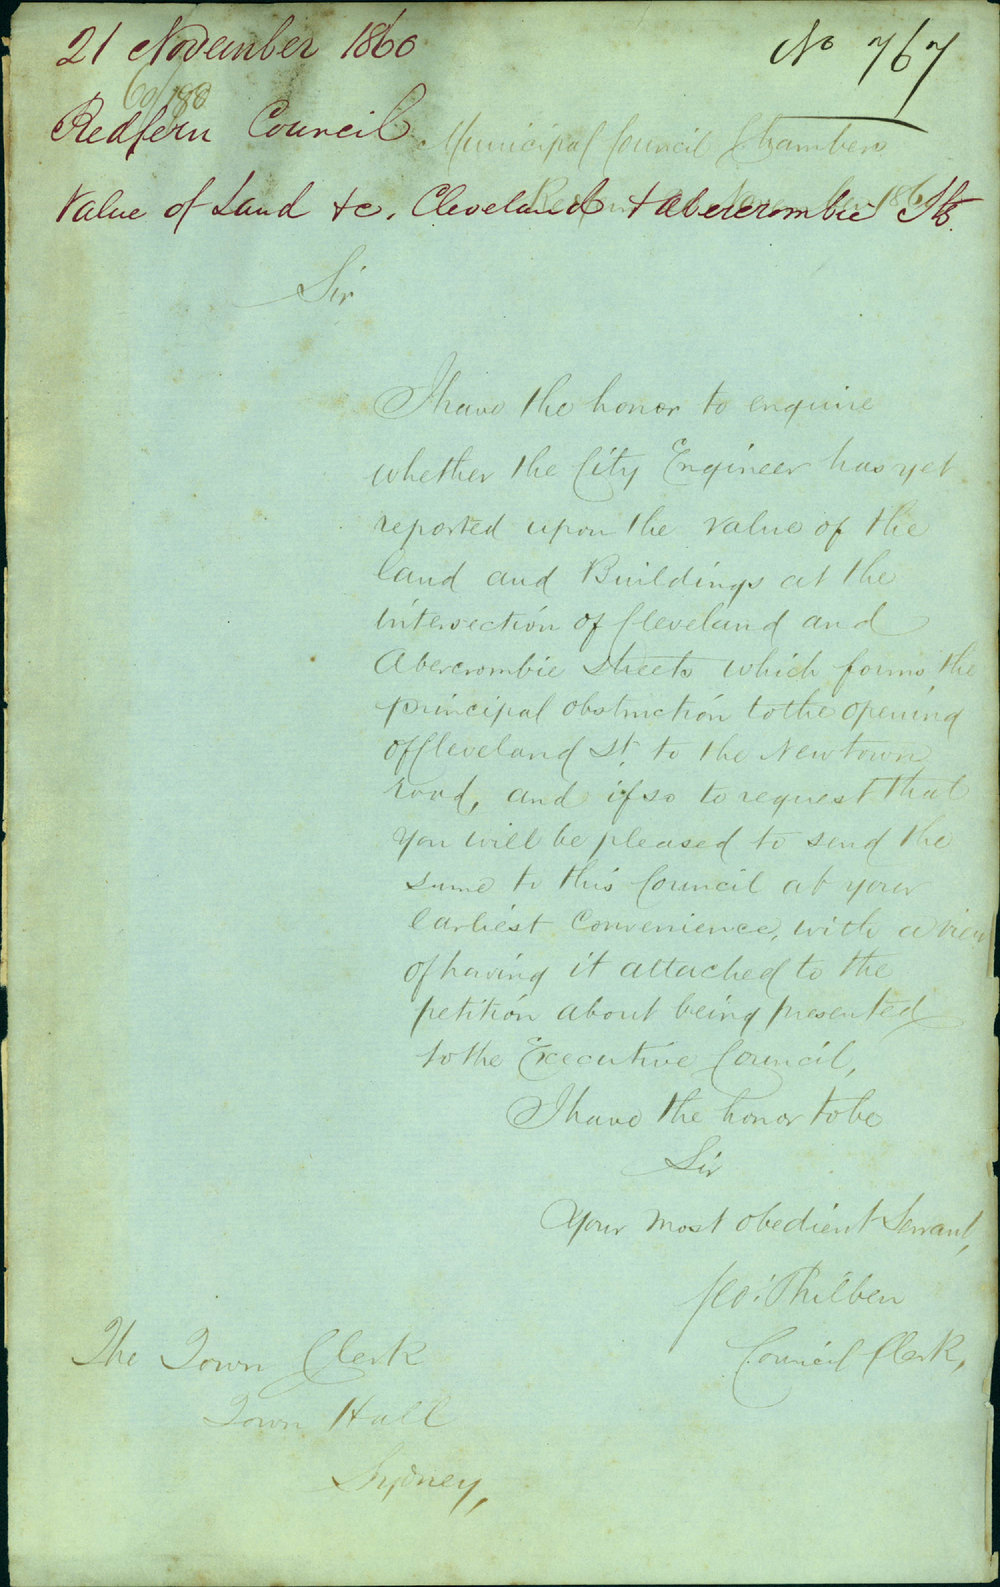 21 November 1860
No 767
60/180
Redfern Council
Municipal Council Chambers
Value of Land &c. Cleveland & Abercrombie Sts.
Redfern November 1860
Sir
I have the honor to enquire
whether the City Engineer has yet
reported upon the value of the
land and Buildings at the
intersection of Cleveland and
Abercrombie streets which forms the
principal obstruction to the opening
of Cleveland St. to the New town
road, and if so to request that
you will be pleased to send the
same to this Council at your
earliest convenience, with a view
of having it attached to the
petition about being presented
to the Executive Council,
I have the honor to be
Sir
Your most obedient Servant,
Geo: Philben
Council Clerk,
The Town Clerk
Town Hall
Sydney,